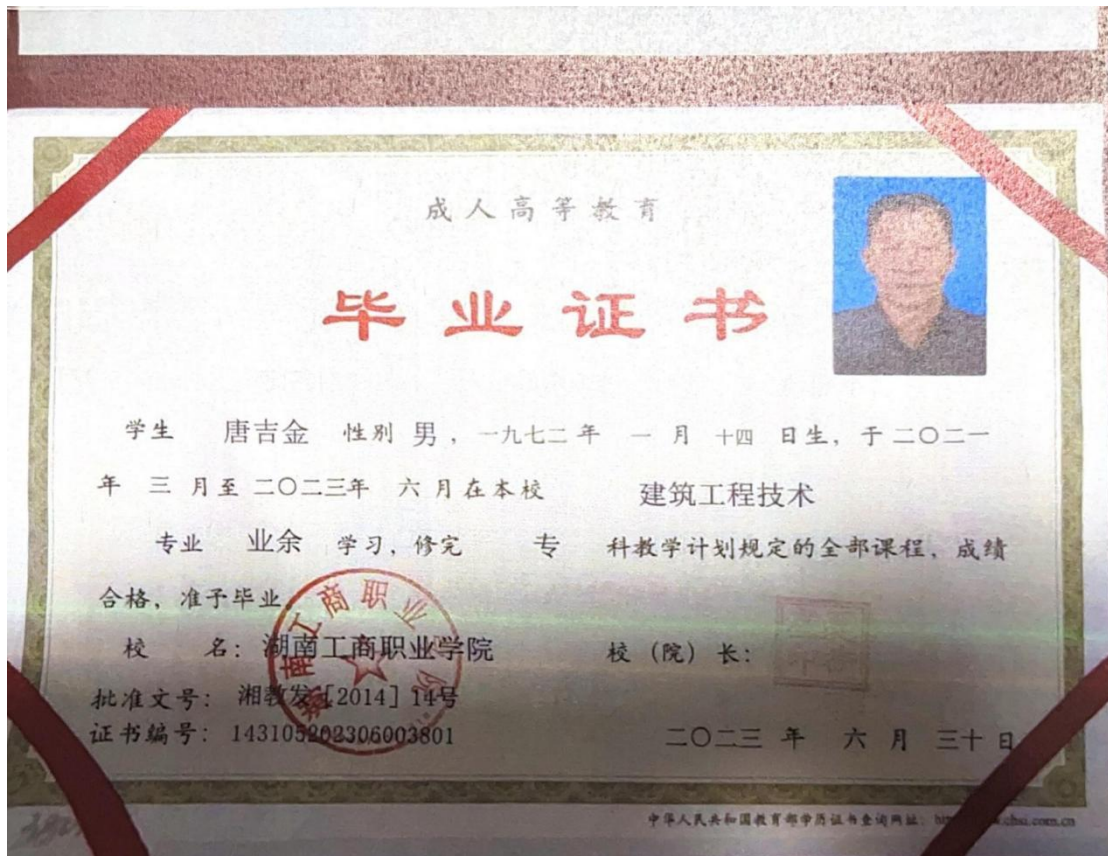 成人高等教育
毕业证书
学生 唐吉金 性别 男，一九七二年 一 月 十四 日生，于二〇二一
年 三 月至二〇二三年 六 月在本校 建筑工程技术
专业 业余 学习，修完 专 科教学计划规定的全部课程，成绩
合格，准予毕业。
校 名：湖南工商职业学院 校（院）长：
批准文号：湘教发［2014］14号
证书编号：143105202306003801
二〇二三 年 六 月 三十 日
中华人民共和国教育部学历证书查询网址：